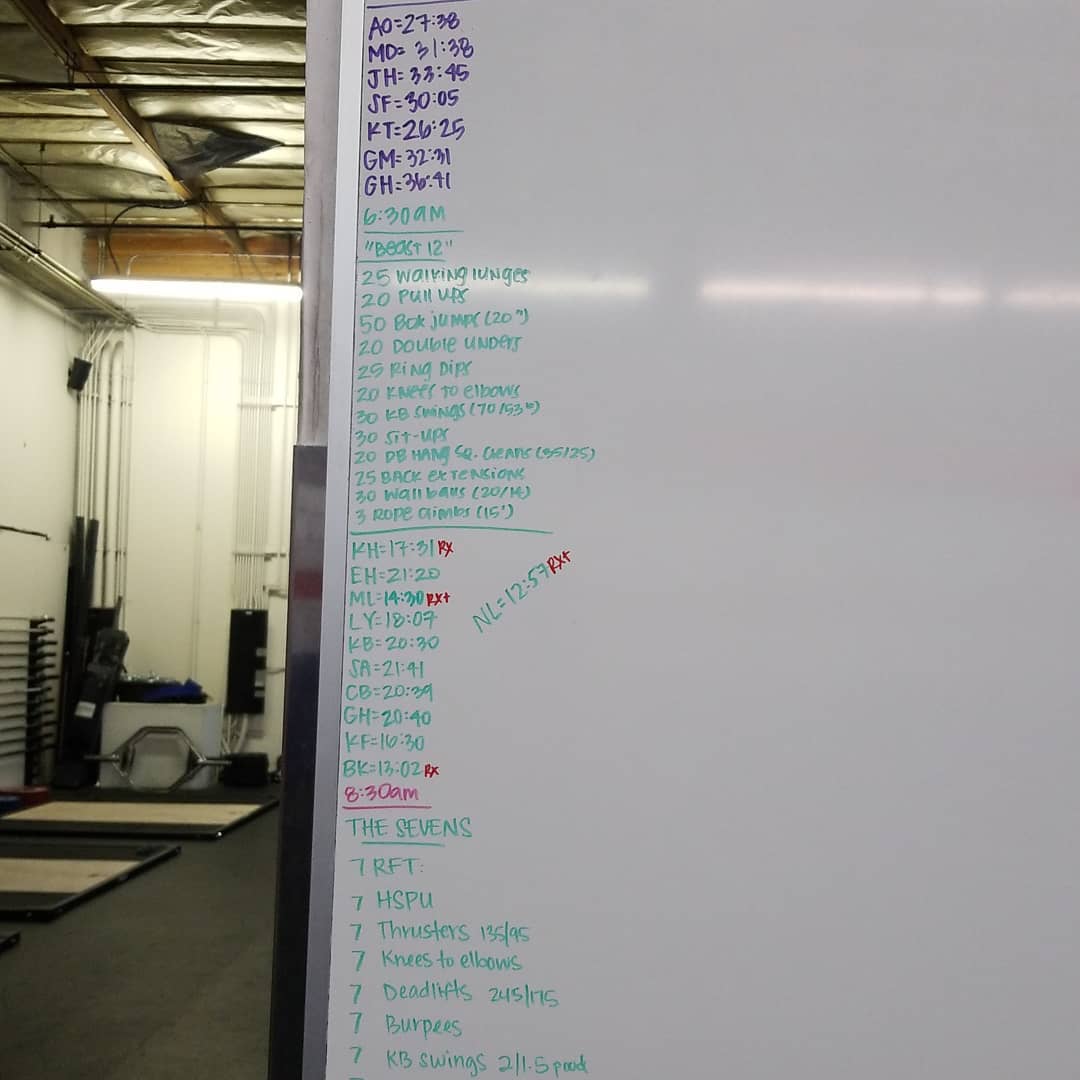 AO=27:38
MD= 31:38
JH= 33:45
SF=30:05
KT=26:25
GM=32:31
GH=36:41
6:30am
"Beast 12"
25 Walking lunges
20 Pull ups
50 Box jumps (20")
20 Double unders
25 Ring Dips
20 Knees to elbows
30 KB swings (70/53#)
30 Sit-ups
20 DB Hang Sq. Cleans (35/25)
25 Back extensions
30 Wall balls (20/14)
3 Rope climbs (15')
KH=17:31 RX
EH=21:20
ML=14:30 RX+
NL=12:57 RX+
LY=18:07
KB=20:30
SA=21:41
CB=20:39
GH=20:40
KF=16:30
BK=13:02 RX
8:30am
THE SEVENS
7 RFT:
7 HSPU
7 Thrusters 135/95
7 Knees to elbows
7 Deadlifts 245/175
7 Burpees
7 KB swings 2/1.5 pood